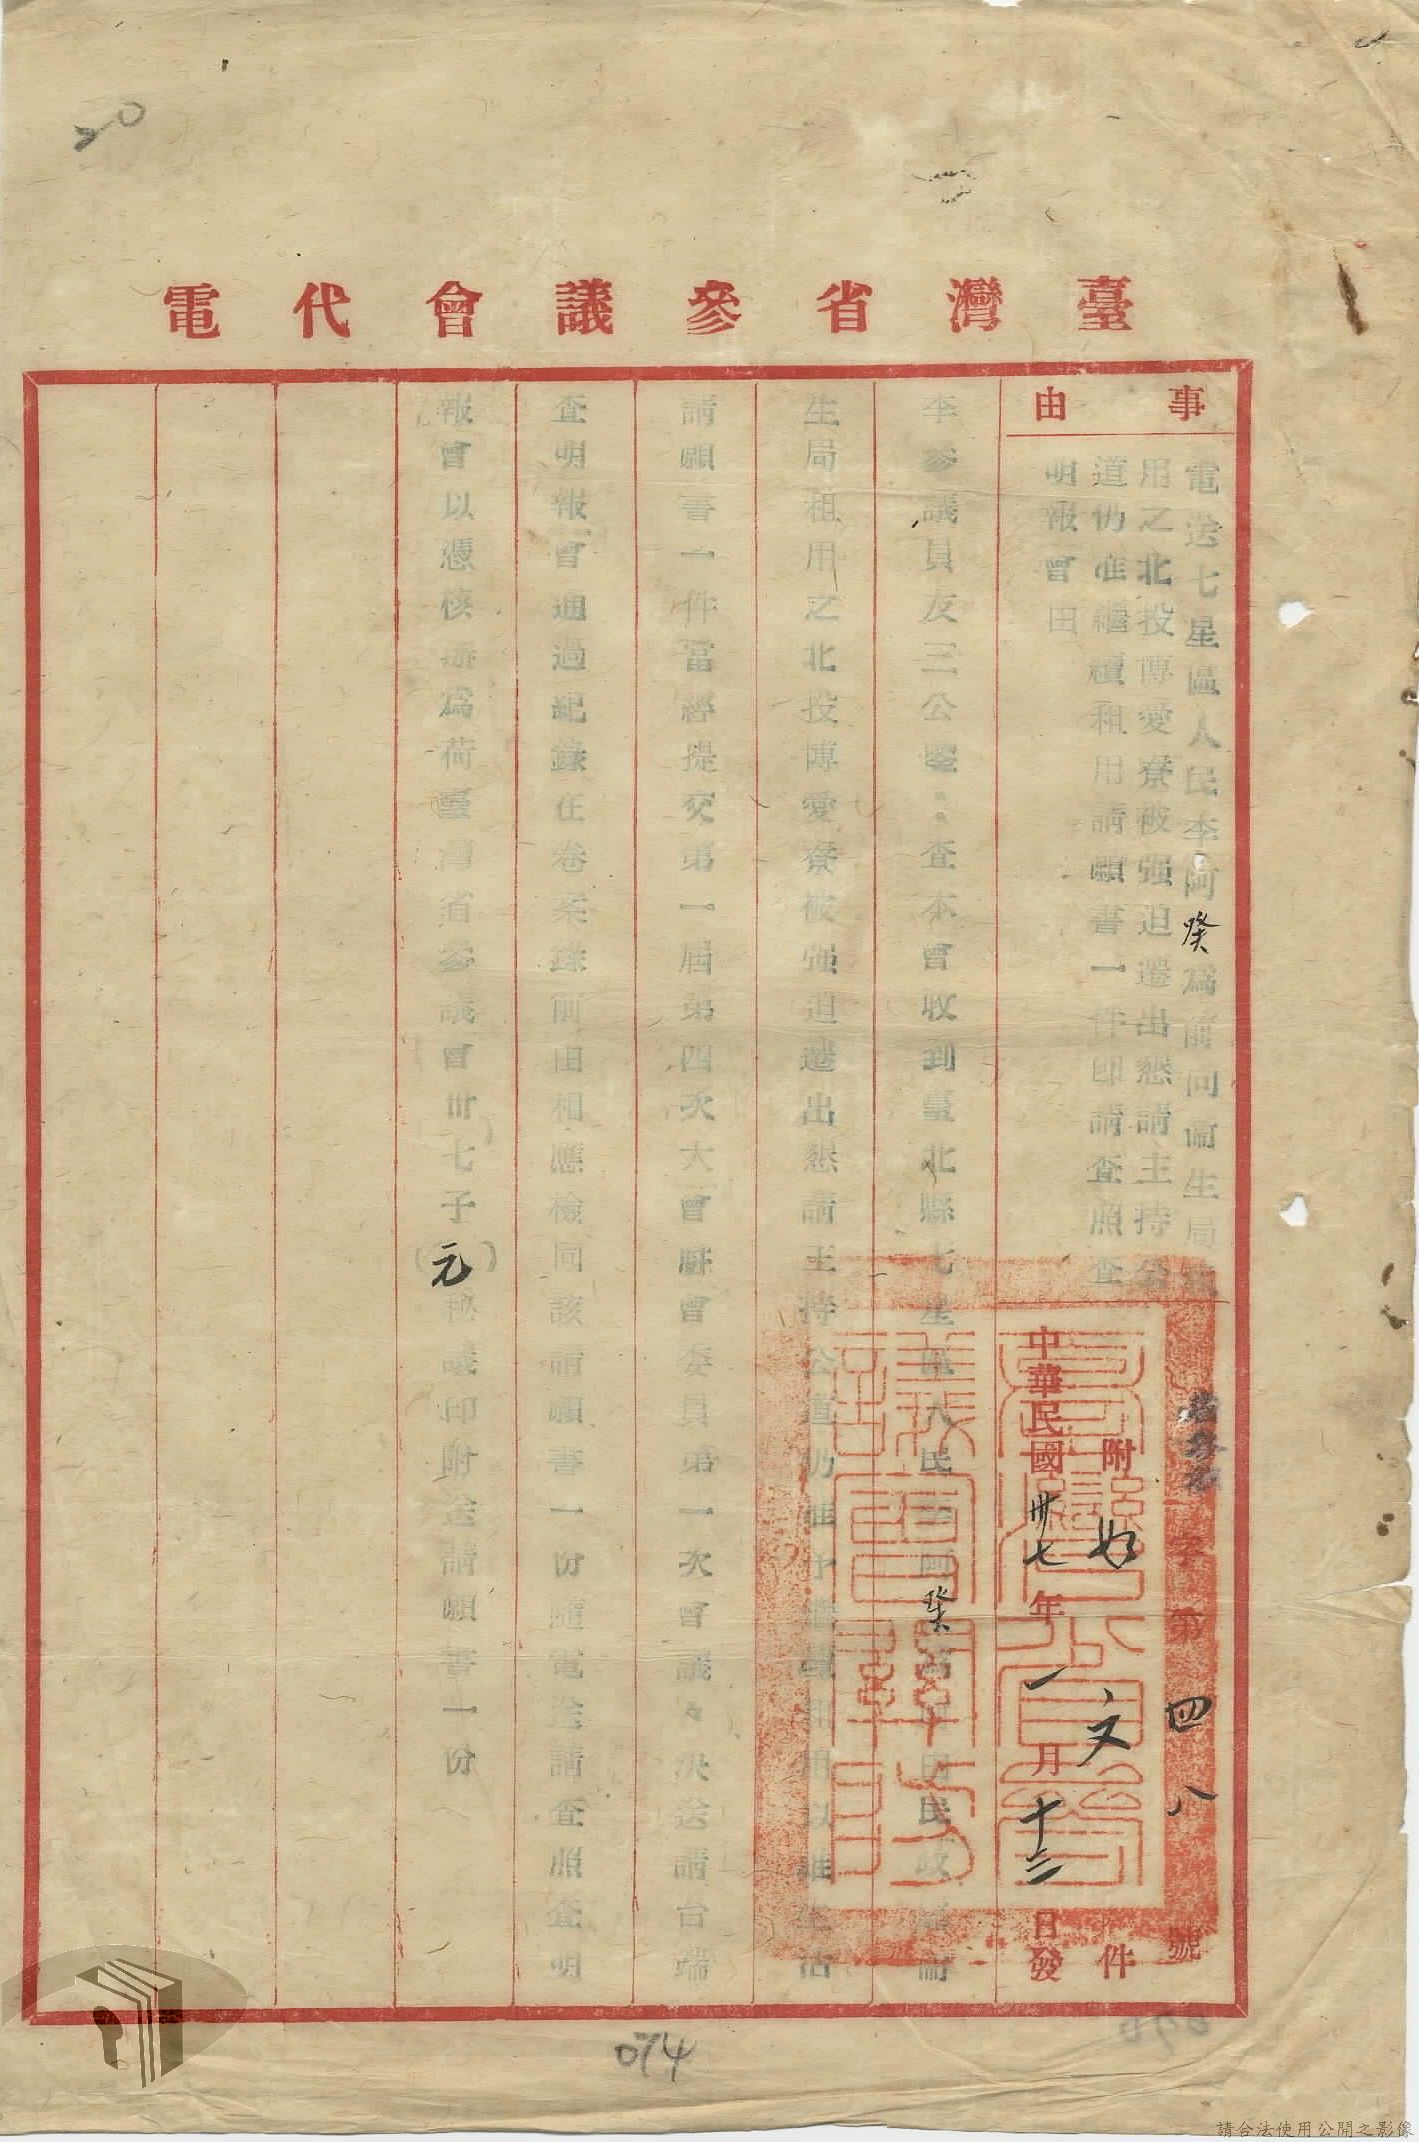 臺灣省參議會代電
事由
電送七星區人民李阿癸爲前向衞生局租
用之北投博愛寮被强迫遷出懇請主持公
道仍准繼續租用請願書一件即請查照查
明報會由
字第四八號
附如文件
中華民國卅七年一月十三日發
李參議員友三公鑒：查本會收到臺北縣七星區人民李阿癸
生局租用之北投博愛寮被强迫遷出懇請主持公道仍准予繼續租用以維生活
請願書一件當經提交第一屆第四次大會駐會委員第一次會議々決送請台端
查明報會通過紀錄在卷案錄前由相應檢同該請願書一份隨電送請查照查明
報會以憑核辦爲荷臺灣省參議會卅七子(元)秘議印附送請願書一份
20
074
請合法使用公開之影像